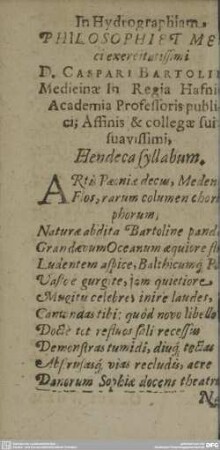 In Hydrographiam
PHILOSOPHI ET ME
ci exercitatissimi
D. CASPARI BARTOLI
Medicinæ In Regia Hafni
Academia Professoris publi
ci; Affinis & collegæ sui
suavissimi,
Hendecasyllabum.
ARtis Pæoniæ decus, Meden
Flos, rarum columen chori
phorum,
Naturæ abdita Bartoline pande
Grandævum Oceanum æquore
Ludentem aspice, Balthicumq́
Vasto è gurgite, jam quietiore
Mugitu celebres inire laudes,
Cantandas tibi: quòd novo libello
Doctè tot refluo soli recessus
Demonstras tumidi, diuq́ tectas
Abstrusasq́ vias recludis, acre
Danorum Sophiæ docens theatrū